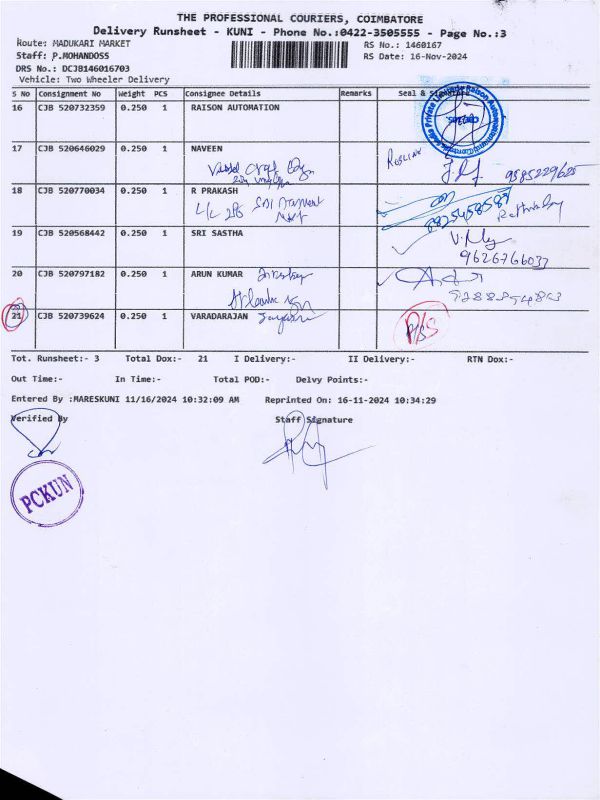 THE PROFESSIONAL COURIERS, COIMBATORE
Delivery Runsheet - KUNI - Phone No.:0422-3505555 - Page No.:3
Route: MADUKARI MARKET
RS No.: 1460167
Staff: P.MOHANDOSS
RS Date: 16-Nov-2024
DRS No.: DCJB146016703
Vehicle: Two Wheeler Delivery
S No Consignment No Weight PCS Consignee Details Remarks Seal & Signature
16 CJB 520732359 0.250 1 RAISON AUTOMATION
17 CJB 520646029 0.250 1 NAVEEN
9585229625
18 CJB 520770034 0.250 1 R PRAKASH
19 CJB 520568442 0.250 1 SRI SASTHA
9626766037
20 CJB 520797182 0.250 1 ARUN KUMAR
21 CJB 520739624 0.250 1 VARADARAJAN
Tot. Runsheet:- 3 Total Dox:- 21 I Delivery:- II Delivery:- RTN Dox:-
Out Time:- In Time:- Total POD:- Delvy Points:-
Entered By :MARESKUNI 11/16/2024 10:32:09 AM Reprinted On: 16-11-2024 10:34:29
Verified By Staff Signature
PCKUN